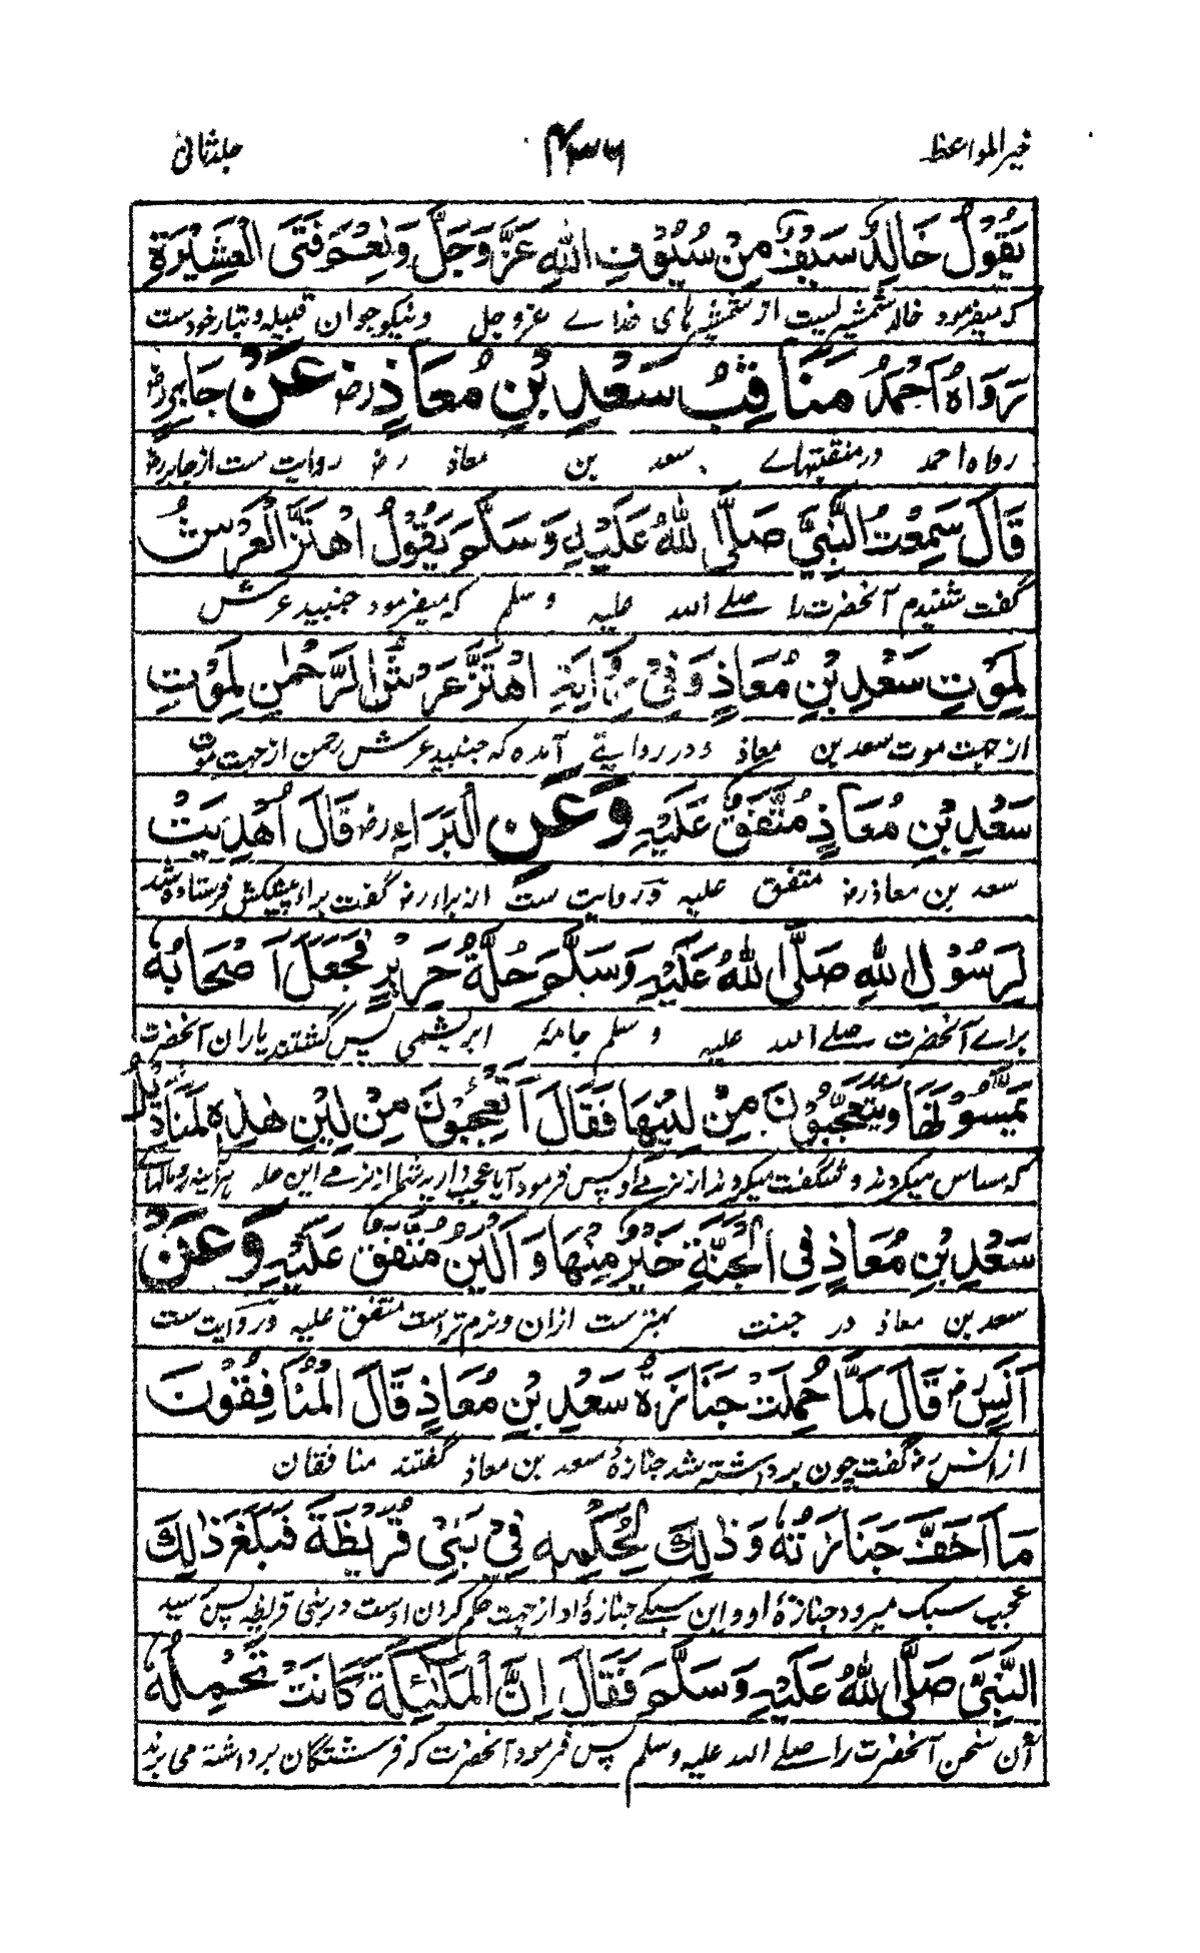 خیر المواعظ ۴۳۶ جلد ثانی
يَقُوْلُ خَالِدٌ سَيْفٌ مِنْ سُيُوْفِ اللهِ عَزَّ وَجَلَّ وَنِعْمَ فَتَى الْعَشِيْرَةِ
که میفرمود خالد شمشیریست از شمشیرهای خداے عزوجل ونیکو جوان قبیله وتبار خودست
رَوَاهُ اَحْمَدُ مَنَاقِبُ سَعْدِ بْنِ مُعَاذٍ رض عَنْ جَابِرٍ رض
رواه احمد در منقبتهاے سعد بن معاذ رض روایت ست از جابر رض
قَالَ سَمِعْتُ النَّبِيَّ صَلَّى اللهُ عَلَيْهِ وَسَلَّمَ يَقُوْلُ اهْتَزَّ الْعَرْشُ
گفت شنیدم آنحضرت را صلے الله علیه وسلم که میفرمود جنبید عرش
لِمَوْتِ سَعْدِ بْنِ مُعَاذٍ وَفِيْ رِوَايَةٍ اهْتَزَّ عَرْشُ الرَّحْمٰنِ لِمَوْتِ
از جهت موت سعد بن معاذ و در روایتے آمده که جنبید عرش رحمن از جهت موت
سَعْدِ بْنِ مُعَاذٍ مُتَّفَقٌ عَلَيْهِ وَعَنِ الْبَرَاءِ رض قَالَ اُهْدِيَتْ
سعد بن معاذ رض متفق علیه و روایت ست از براء رض گفت براء پیشکش فرستاده شد
لِرَسُوْلِ اللهِ صَلَّى اللهُ عَلَيْهِ وَسَلَّمَ حُلَّةُ حَرِيْرٍ فَجَعَلَ اَصْحَابُهٗ
براے آنحضرت صلے الله علیه وسلم جامۀ ابریشمی پس گشتند یاران آنحضرت
يَمَسُّوْنَهَا وَيَتَعَجَّبُوْنَ مِنْ لِيْنِهَا فَقَالَ اَتَعْجَبُوْنَ مِنْ لِيْنِ هٰذِهٖ لَمَنَادِيْلُ
که مساس میکردند و شگفت میکردند از نرمے او پس فرمود آیا عجب دارید شما از نرمے این حله هر آئینه رومالهاے
سَعْدِ بْنِ مُعَاذٍ فِي الْجَنَّةِ خَيْرٌ مِنْهَا وَاَلْيَنُ مُتَّفَقٌ عَلَيْهِ وَعَنْ
سعد بن معاذ در جنت بهترست ازان ونرم تر است متفق علیه و روایت ست
اَنَسٍ رض قَالَ لَمَّا حُمِلَتْ جَنَازَةُ سَعْدِ بْنِ مُعَاذٍ قَالَ الْمُنَافِقُوْنَ
از انس رض گفت چون برداشته شد جنازۀ سعد بن معاذ گفتند منافقان
مَا اَخَفَّ جَنَازَتُهٗ وَذٰلِكَ لِحُكْمِهٖ فِيْ بَنِيْ قُرَيْظَةَ فَبَلَغَ ذٰلِكَ
عجیب سبک میرود جنازۀ او واین سبکے جنازۀ او از جهت حکم کردن اوست در بنی قریظه پس رسید
النَّبِيَّ صَلَّى اللهُ عَلَيْهِ وَسَلَّمَ فَقَالَ اِنَّ الْمَلٰئِكَةَ كَانَتْ تَحْمِلُهٗ
آن سخن آنحضرت را صلے الله علیه وسلم پس فرمود آنحضرت که فرشتگان برداشته می بردند